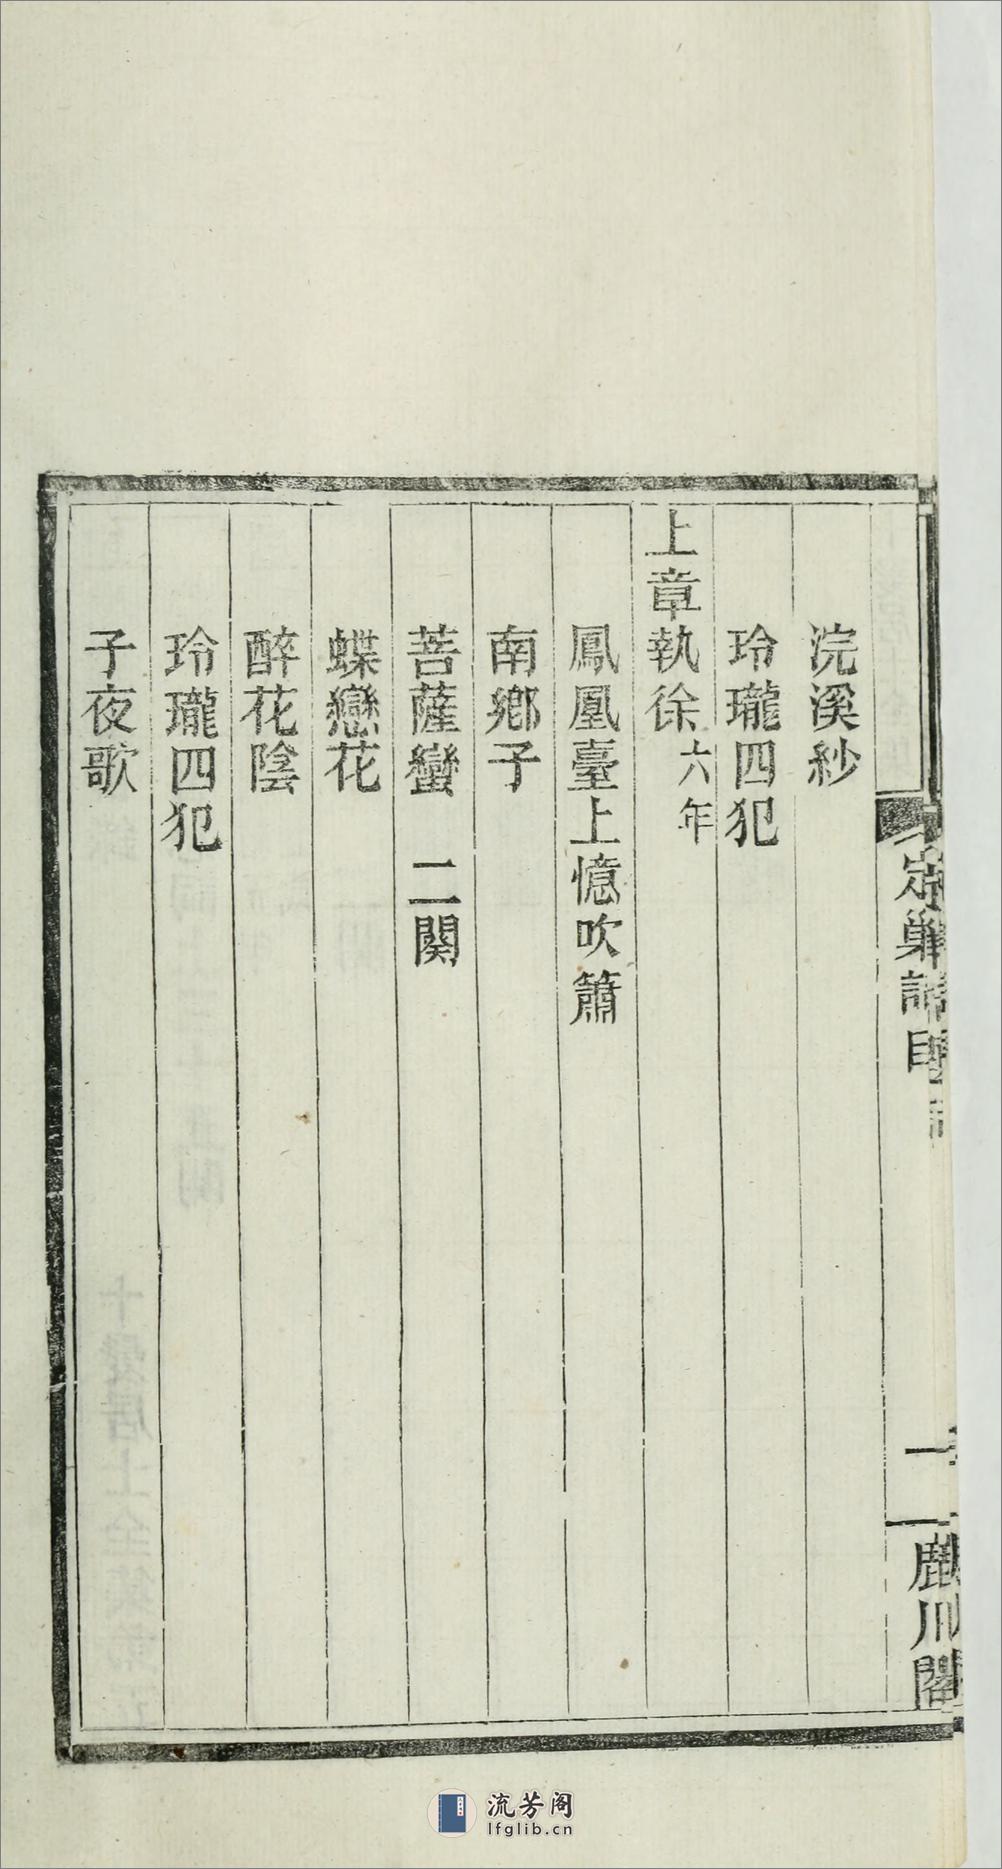 浣溪紗
玲瓏四犯
上章執徐六年
鳳凰臺上憶吹簫
南鄉子
菩薩蠻 二闋
蝶戀花
醉花陰
玲瓏四犯
子夜歌
定巢詞目
一
鹿川閣
流芳阁
lfglib.cn